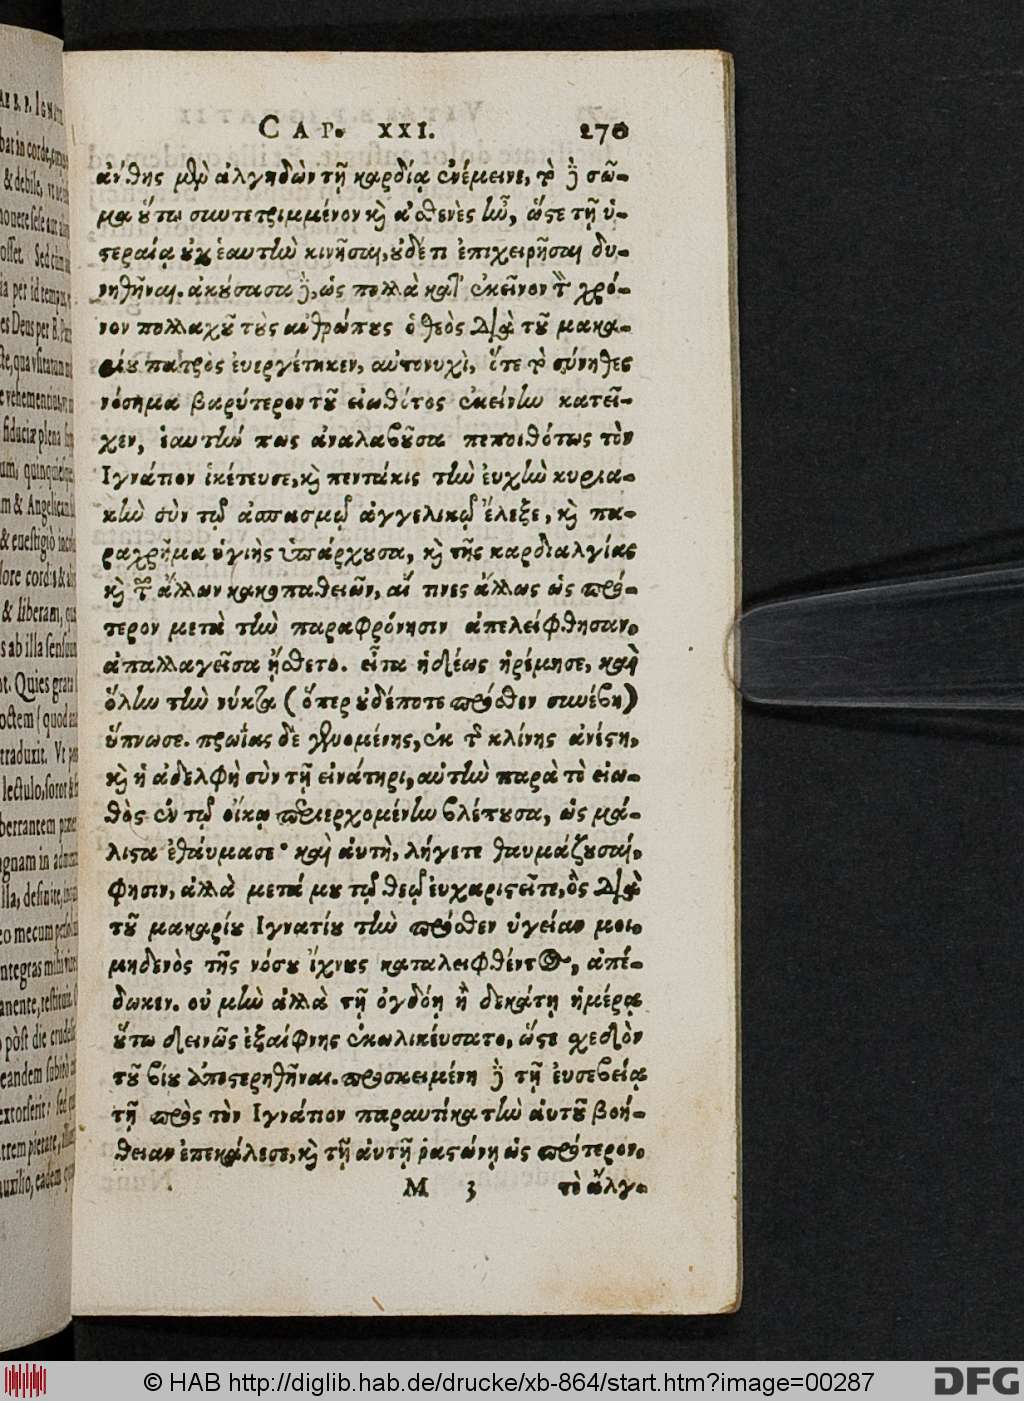 CAP. XXI. 270
αὐτῆς μὲν ἀλγηδὼν τῇ καρδίᾳ ἐνέμεινε, τὸ δὲ σῶ-
μα οὕτω συντετριμμένον καὶ ἀσθενὲς ἦν, ὥστε τῇ ὑ-
στεραίᾳ οὐχ ἑαυτὴν κινῆσαι, οὐδέ τι ἐπιχειρῆσαι δυ-
νηθῆναι. ἀκούσασα δὲ, ὡς πολλὰ κατ' ἐκεῖνον τὸν χρό-
νον πολλαχοῦ τοὺς ἀνθρώπους ὁ θεὸς διὰ τοῦ μακα-
ρίου πατρὸς ἐυεργέτηκεν, αὐτονυχὶ, ὅτε τὸ σύνηθες
νόσημα βαρύτερον τοῦ εἰωθότος ἐκείνην κατεῖ-
χεν, ἑαυτήν πως ἀναλαβοῦσα πεποιθότως τὸν
Ιγνάτιον ἱκέτευσε, καὶ πεντάκις τὴν ἐυχὴν κυρια-
κὴν σὺν τῷ ἀσπασμῷ ἀγγελικῷ ἔλεξε, καὶ πα-
ραχρῆμα ὑγιὴς ὑπάρχουσα, καὶ τῆς καρδιαλγίας
καὶ τῶν ἄλλων κακοπαθειῶν, αἵ τινες ἄλλως ὡς πρό-
τερον μετὰ τὴν παραφρόνησιν ἀπελείφθησαν,
ἀπαλλαγεῖσα ᾔσθετο. εἶτα ἡδέως ἠρέμησε, καὶ
ὅλην τὴν νύκτα (ὅπερ οὐδέποτε πρόσθεν συνέβη)
ὕπνωσε. πρωΐας δὲ γενομένης, ἐκ τῆς κλίνης ἀνέστη,
καὶ ἡ ἀδελφὴ σὺν τῇ εἰνάτηρι, αὐτὴν παρὰ τὸ εἰω-
θὸς ἐν τῷ οἴκῳ περιερχομένην βλέπουσα, ὡς μά-
λιστα ἐθαύμασε· καὶ ἀυτὴ, λήγετε θαυμάζουσαί,
φησιν, ἀλλὰ μετά μου τῷ θεῷ ἐυχαριστεῖτε, ὃς διὰ
τοῦ μακαρίου Ιγνατίου τὴν πρόσθεν ὑγείαν μοι,
μηδενὸς τῆς νόσου ἴχνους καταλειφθέντος, ἀπέ-
δωκεν. οὐ μὴν ἀλλὰ τῇ ὀγδόῃ ἢ δεκάτῃ ἡμέρᾳ
οὕτω δεινῶς ἐξαίφνης ἐκωλικεύσατο, ὥστε σχεδὸν
τοῦ βίου ἀποστερηθῆναι. προσκειμένη δὲ τῇ ἐυσεβείᾳ
τῇ πρὸς τὸν Ιγνάτιον παραυτίκα τὴν ἀυτοῦ βοή-
θειαν ἐπεκάλεσε, καὶ τῇ ἀυτῇ ῥαστώνῃ ὡς πρότερον,
M 3 τὸ ἄλγ-
© HAB http://diglib.hab.de/drucke/xb-864/start.htm?image=00287
DFG